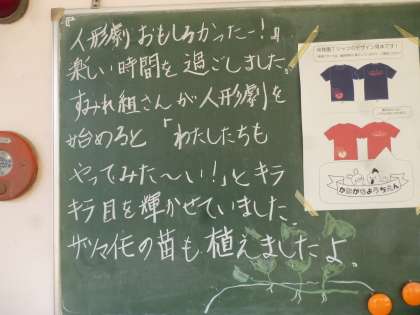 『人形劇おもしろかったー!』
楽しい時間を過ごしました。
すみれ組さんが人形劇を
始めると「わたしたちも
やってみた〜い!」とキラ
キラ目を輝かせていました。
サツマイモの苗も植えましたよ。
Tシャツのデザイン
ようちえん